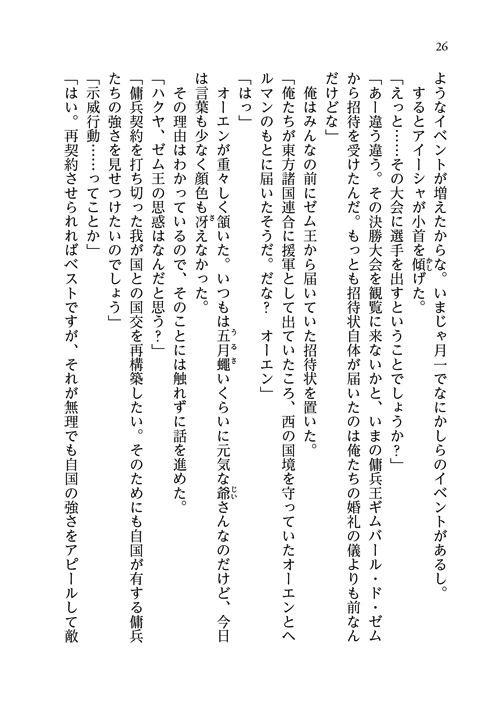 26
ようなイベントが増えたからな。いまじゃ月一でなにかしらのイベントがあるし。
するとアイーシャが小首を傾げた。
「えっと……その大会に選手を出すということでしょうか?」
「あー違う違う。その決勝大会を観覧に来ないかと、いまの傭兵王ギムバール・ド・ゼム
から招待を受けたんだ。もっとも招待状自体が届いたのは俺たちの婚礼の儀よりも前なん
だけどな」
俺はみんなの前にゼム王から届いていた招待状を置いた。
「俺たちが東方諸国連合に援軍として出ていたころ、西の国境を守っていたオーエンとヘ
ルマンのもとに届いたそうだ。だな? オーエン」
「はっ」
オーエンが重々しく頷いた。いつもは五月蠅いくらいに元気な爺さんなのだけど、今日
は言葉も少なく顔色も冴えなかった。
その理由はわかっているので、そのことには触れずに話を進めた。
「ハクヤ、ゼム王の思惑はなんだと思う?」
「傭兵契約を打ち切った我が国との国交を再構築したい。そのためにも自国が有する傭兵
たちの強さを見せつけたいのでしょう」
「示威行動……ってことか」
「はい。再契約させられればベストですが、それが無理でも自国の強さをアピールして敵